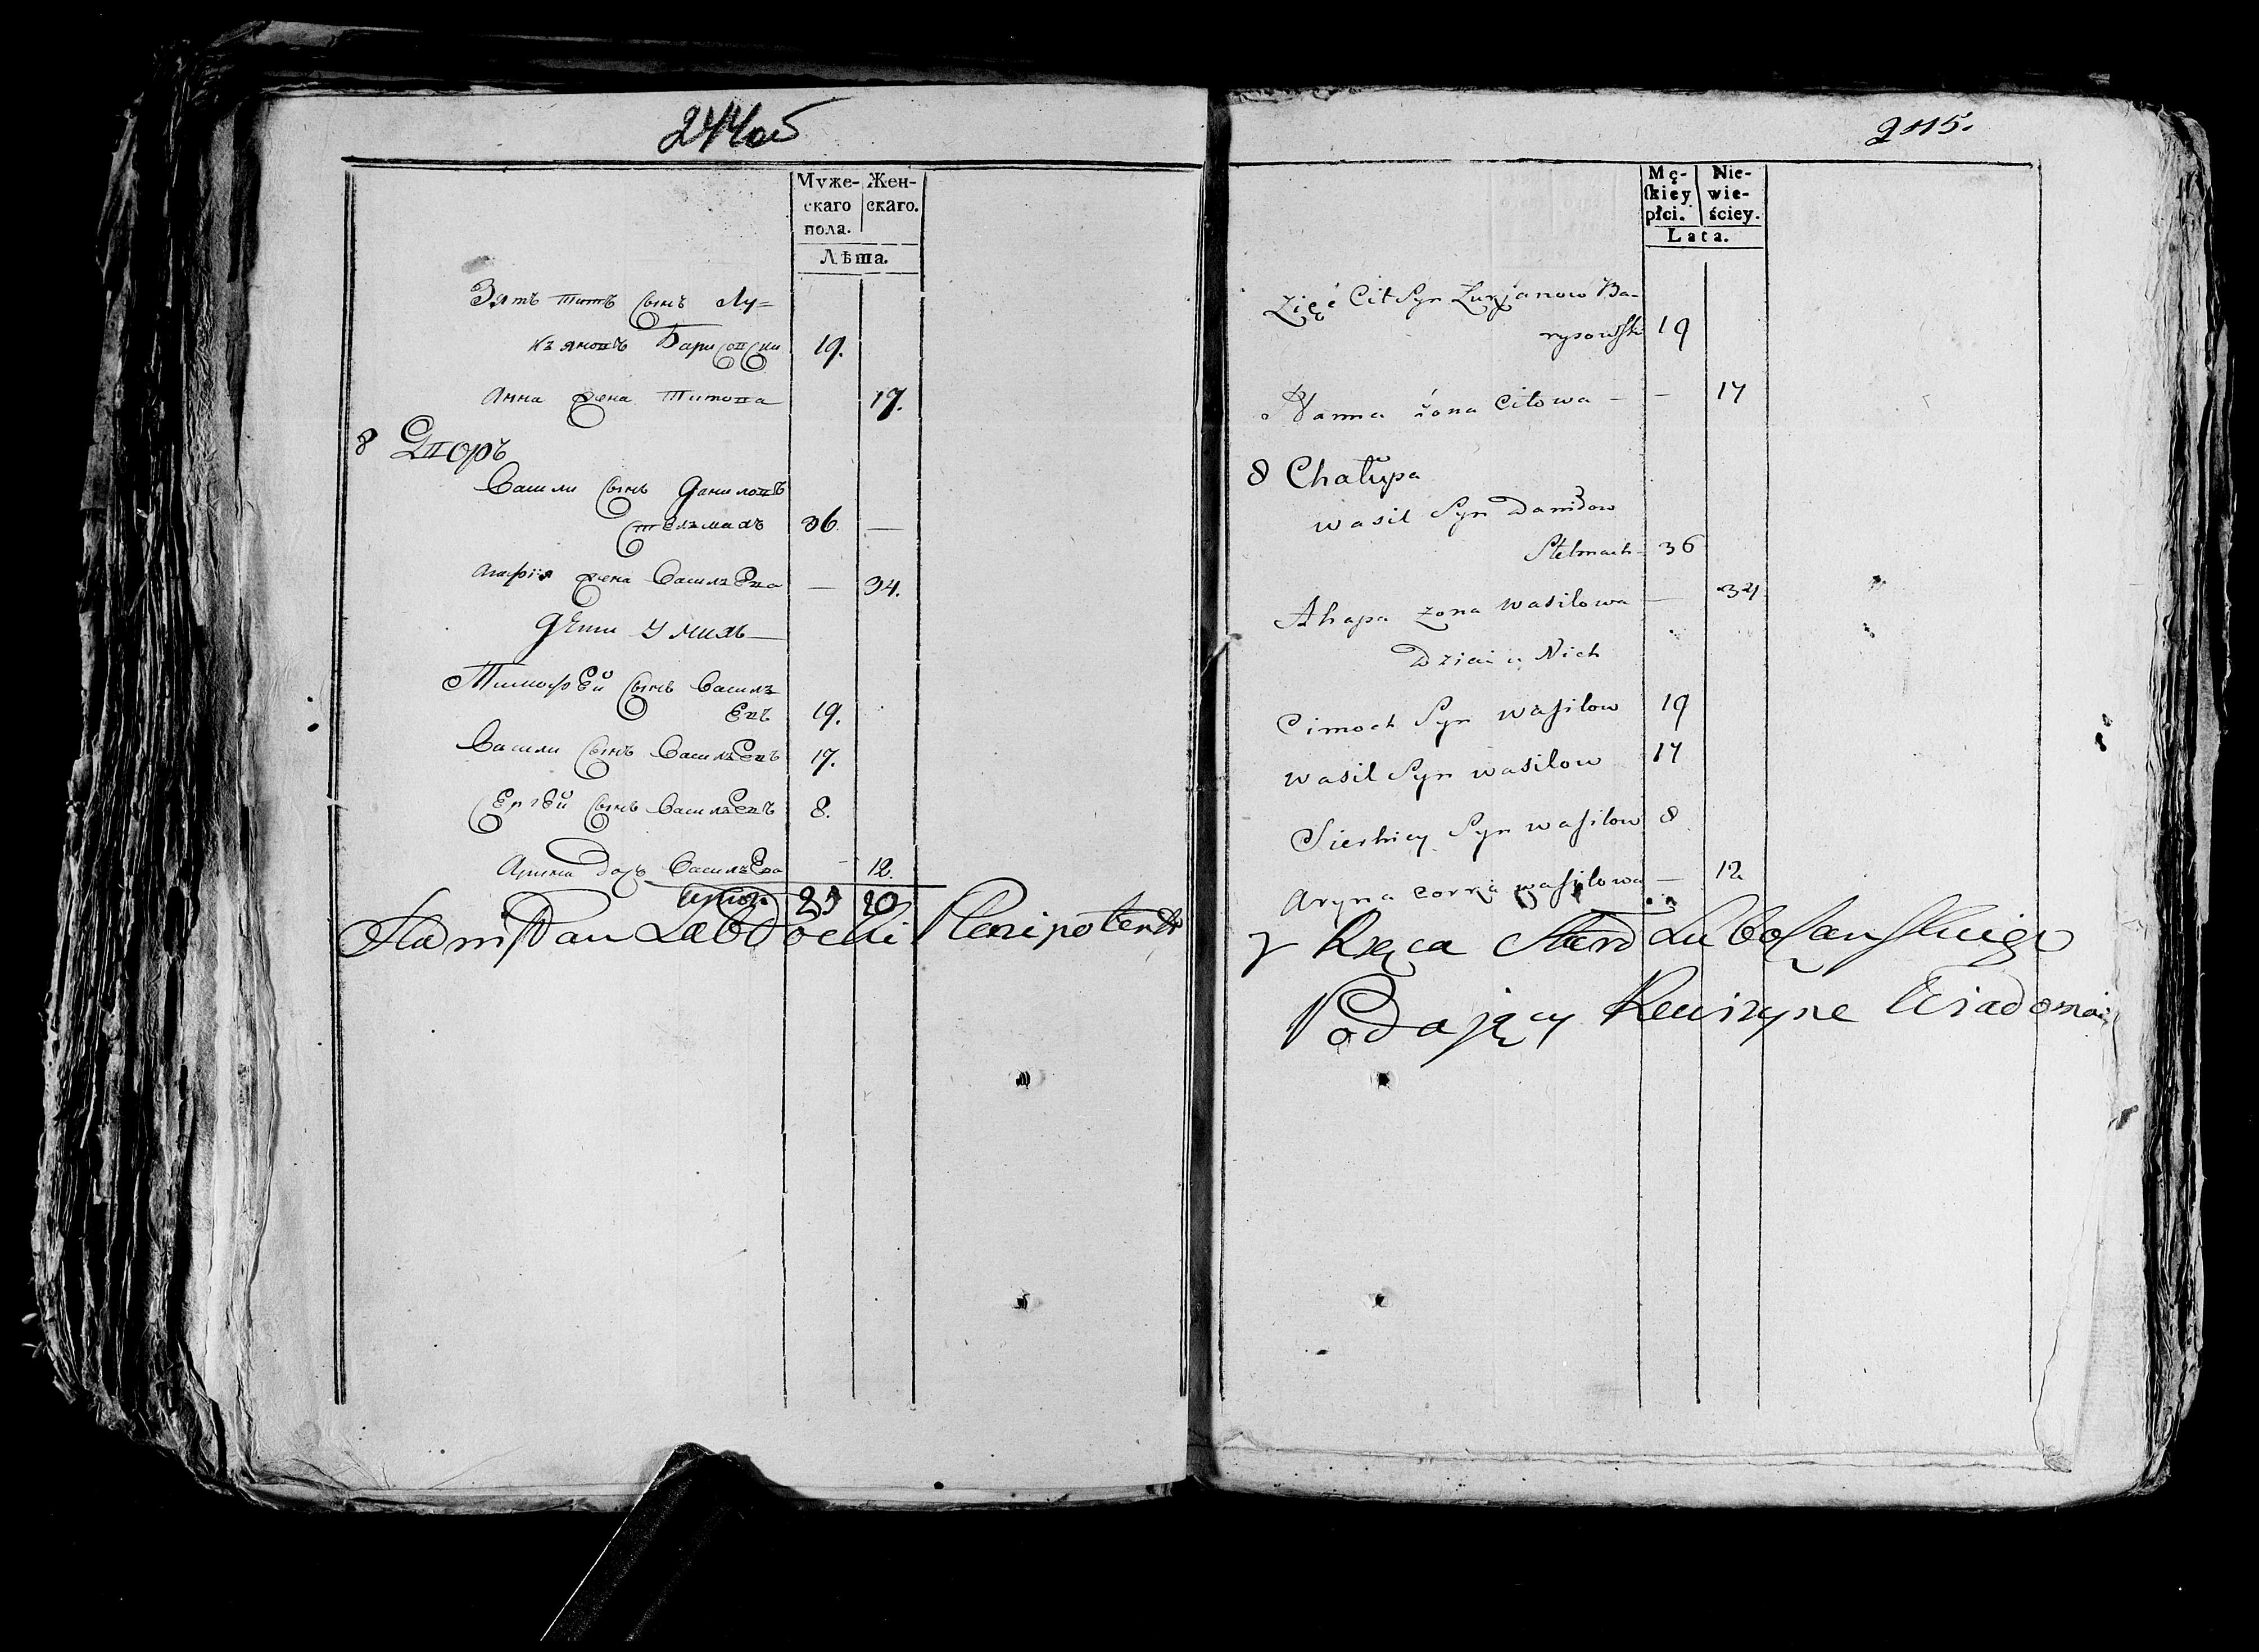 244об
Муже-
скаго
пола.
Жен-
скаго.
Лѣта.
Зять титъ сынъ Лу=
кьяновъ Барисовски 19.
Анна жена Титова 17.
8 Дворъ
Васили сынъ Даниловъ
Стельмахъ 36. —
Агафія жена Васильева — 34.
Дети у Ихъ
Тимофей сынъ Василь
евъ 19.
Васили сынъ Васильевъ 17.
Сергей сынъ Васильевъ 8.
Арина дочь Васильева — 12.
Итого 25 20
Stanisław Plenipotent
245.
Mę-
skiey
płci.
Nie-
wie-
ściey.
Lata.
Zięć Cit Syn Łukjanow Ba-
rysowski 19
Hanna żona Citowa — — 17
8 Chałupa
wasil Syn Daniłow
Stelmach 36
Ahapa żona wasilowa — 34
Dzieci u Nich
Cimoch Syn wasilow 19
wasil Syn wasilow 17
Sierhiey Syn wasilow 8
Aryna corka wasilowa — 12
Podający Rewizyне